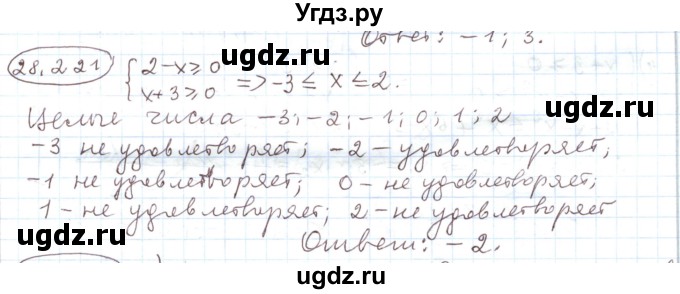 Угдз.ру
Ответ: -1; 3.
28.221 { 2-x≥0
x+3≥0 => -3 ≤ x ≤ 2.
Целые числа -3; -2; -1; 0; 1; 2
-3 не удовлетворяет; -2 - удовлетворяет;
-1 не удовлетворяет; 0 - не удовлетворяет;
1 - не удовлетворяет; 2 - не удовлетворяет
Ответ: -2.
ugdz.ru
ugdz.ru
ugdz.ru
ugdz.ru
ugdz.ru
ugdz.ru